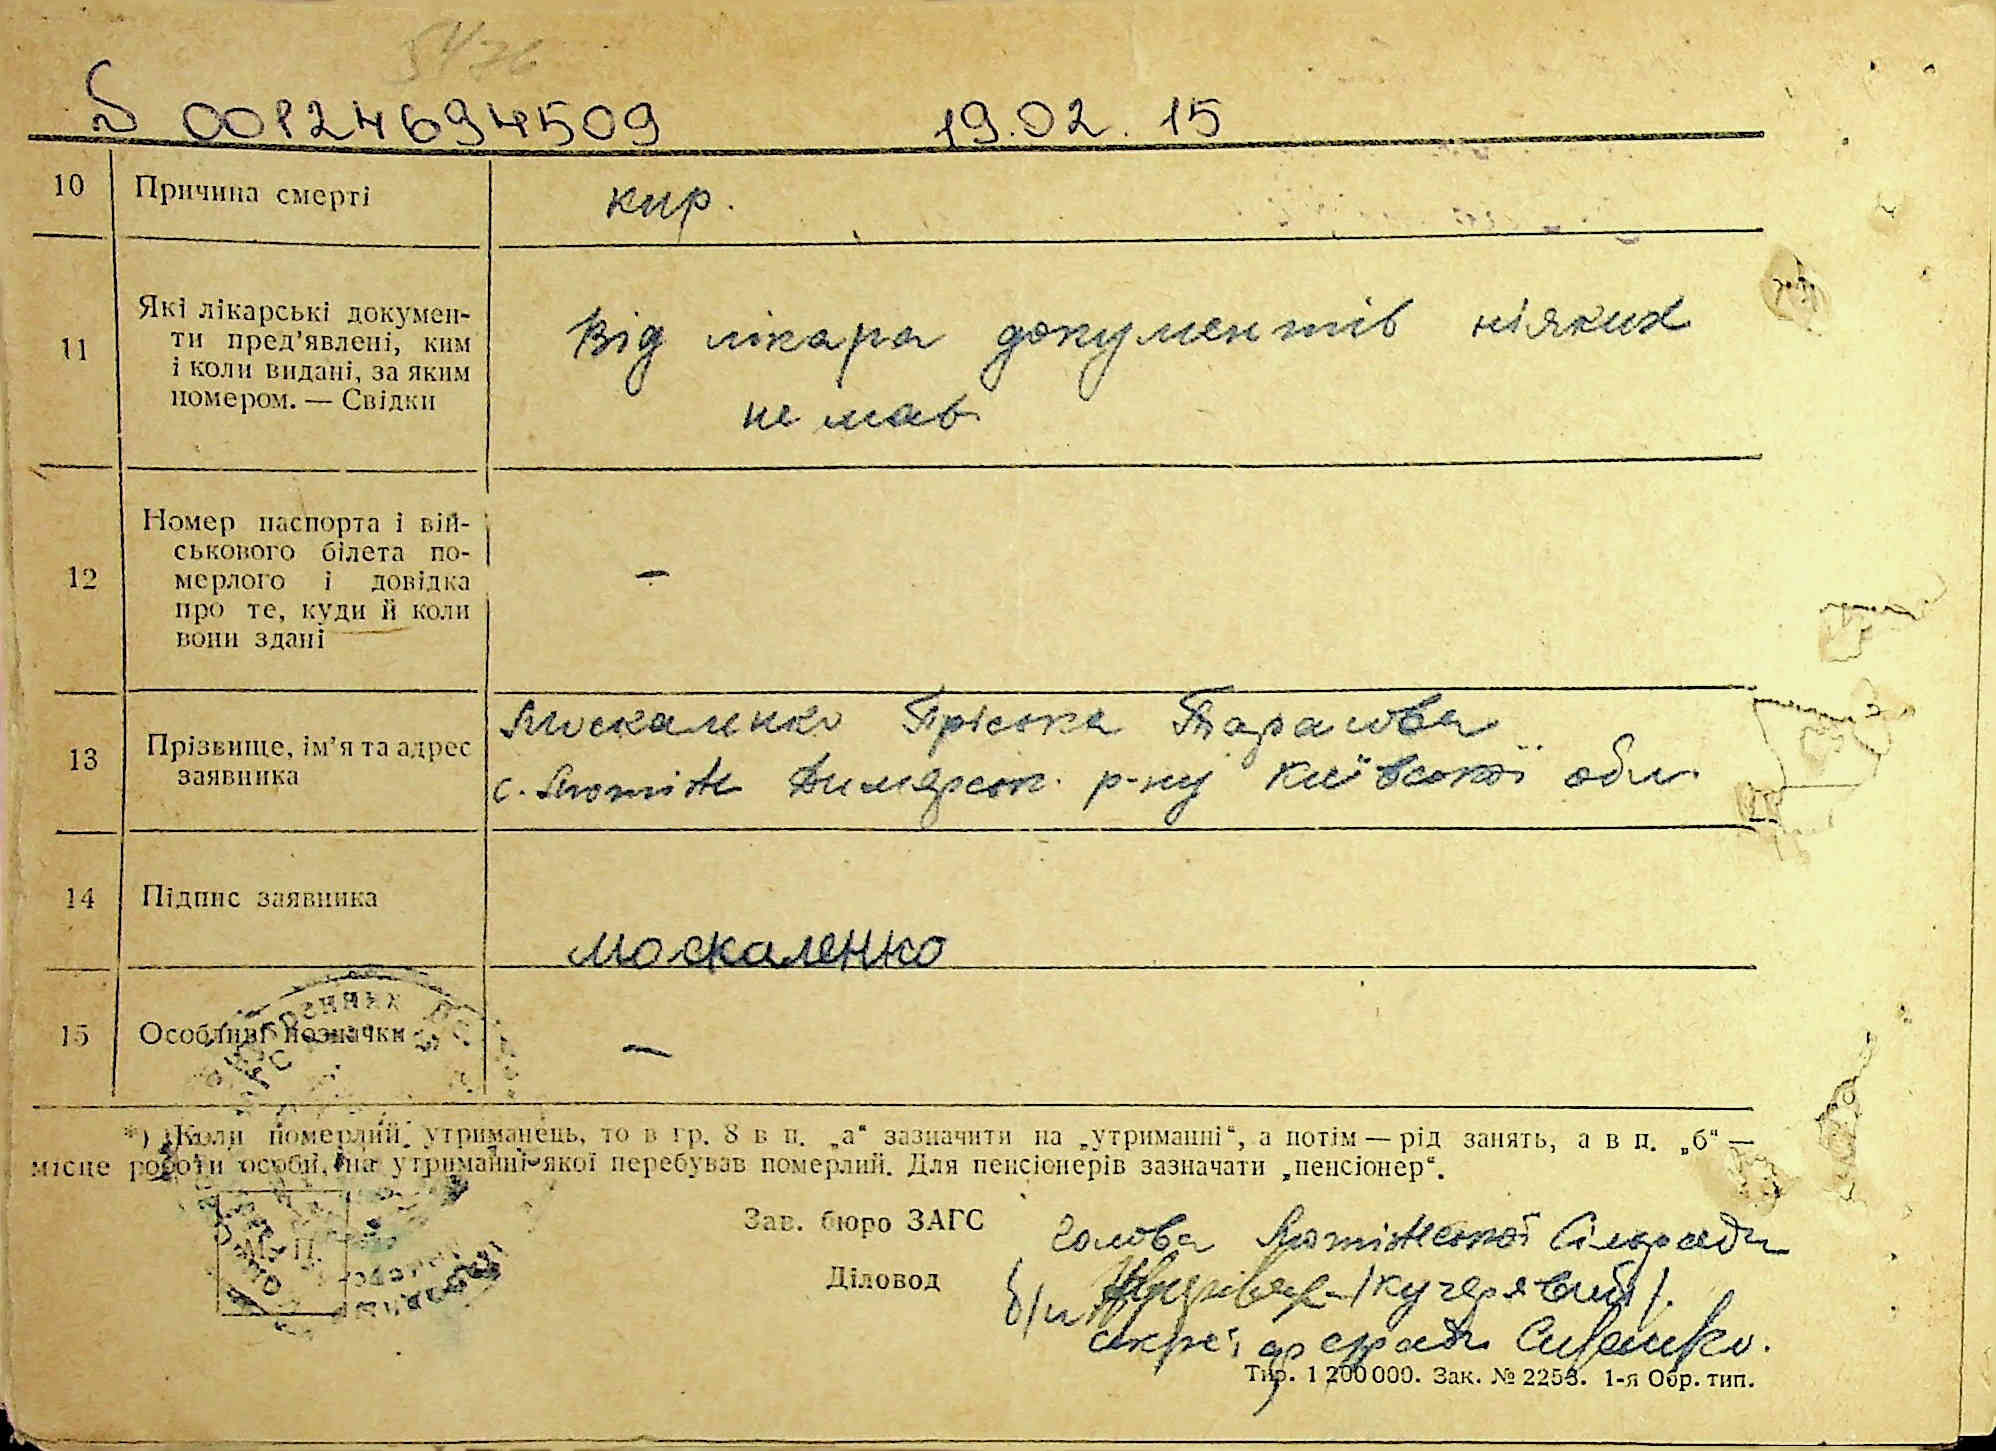 5476
00124694509 19.02.15
10 Причина смерті кир.
11 Які лікарські докумен-
ти пред’явлені, ким
і коли видані, за яким
номером. — Свідки
Від лікара документів ніяких
не мав
12 Номер паспорта і вій-
ськового білета по-
мерлого і довідка
про те, куди й коли
вони здані
—
13 Прізвище, ім’я та адрес
заявника
Москаленко Пріська Тарасова
с. Лютіж Димерськ. р-ну Київської обл.
14 Підпис заявника
Москаленко
15 Особливі позначки —
*) Коли померлий утриманець, то в гр. 8 в п. „а“ зазначити на „утриманні“, а потім — рід занять, а в п. „б“ —
місце роботи особи, на утриманні якої перебував померлий. Для пенсіонерів зазначати „пенсіонер“.
Зав. бюро ЗАГС Голова Лютіжської Сільради
Діловод /Кучерявий/.
М. П.
секретар сільради
Тир. 1 200 000. Зак. № 2253. 1-я Обр. тип.